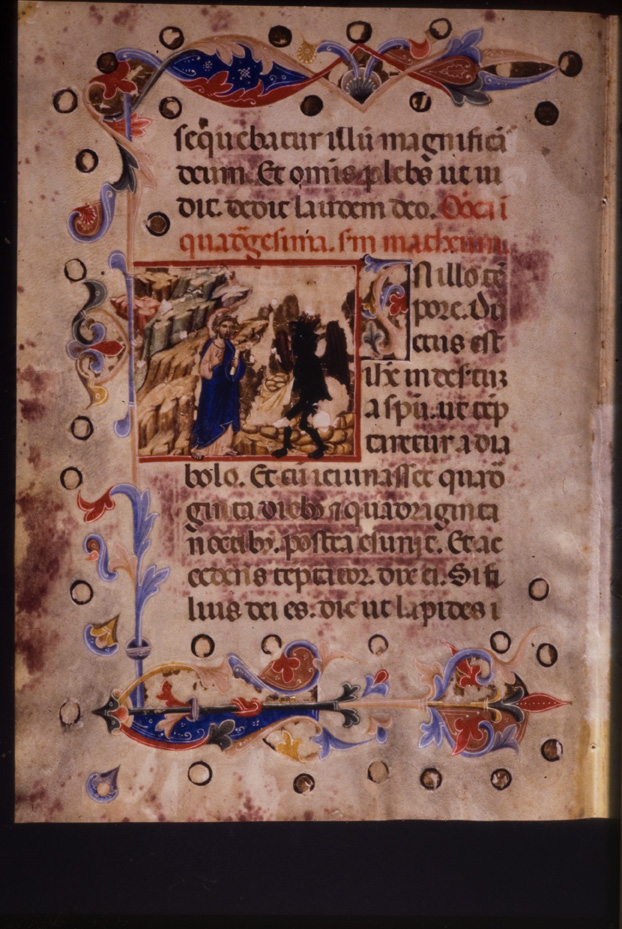 seq̄uebatur illū magnificā
deum. Et om̄is plebs ut ui
dit. dedit laudem deo. Dōca ī
quadg̃esima. s̄m matheum.
N illo tē
pore. Du
ctus est
ihc̄ in desertū
a spū. ut tēp
taretur a dia
bolo. Et cū ieiunasset quad
ginta diebȝ ⁊ quadraginta
noctibȝ. postea esuriit. Et ac
cedens teptator. dix̄ ei. Si fi
lius dei es: dic ut lapides i